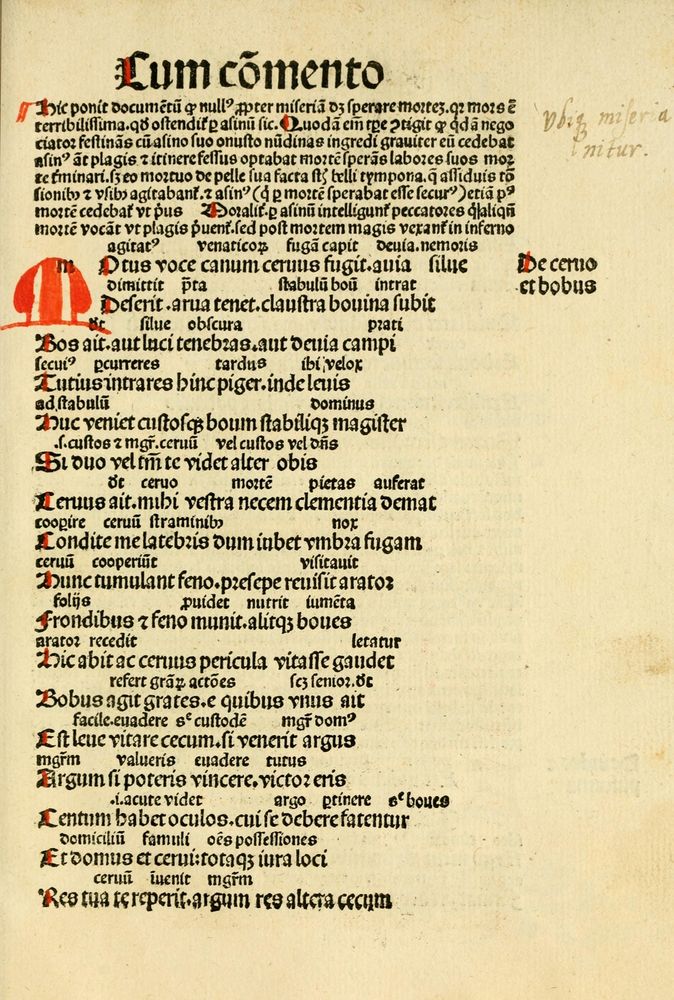 Cum cōmento
Hic ponit documētū ꝙ nullꝰ ꝓpter miseriā dꝫ sperare morteꝫ. qꝛ mors ē
terribilissima. qd̄ ostendit ꝑ asinū sic. Quodā em̄ tꝑe ↄtigit ꝙ qdā nego
ciator festinās cū asino suo onusto nūdinas ingredi graviter eū cedebat
asinꝰ āt plagis ⁊ itinere fessus optabat mortē sperās labores suos mor
te ẜminari. sꝫ eo mortuo de pelle sua facta st̄ belli tympona. q̄ assiduis tō
sionibꝰ ⁊ vsibꝰ agitabant̄. ⁊ asinꝰ (q̇ ꝑ mortē sperabat esse securꝰ) etiā pꝰ
mortem cedebat̄ vt pͥus Moralit̄. ꝑ asinū intelligunt̄ peccatores q̇ aliqn̄
mortē vocāt vt plagis p̄uent̄. sed post mortem magis vexant̄ in inferno
Vbiq̨ miseria
initur.
agitatꝰ venaticoꝝ fugā capit devia. nemoris
m Otus voce canum ceruus fugit. auia silue
De ceruo
et bobus
dimittit pͣta stabulū boū intrat
Deserit. arua tenet. claustra bouina subit
dt̄ silue obscura prati
Bos ait. aut luci tenebras. aut deuia campi
secuiꝰ ꝑcurreres tardus ibi, velox
Tutius intrares hinc piger. inde leuis
ad, stabulū dominus
Huc veniet custosqꝫ boum stabiliqꝫ magister
.s. custos ⁊ mgr̄. ceruū vel custos vel dn̄s
Si duo vel tm̄ te videt alter obis
dt̄ ceruo mortē pietas auferat
Ceruus ait. mihi vestra necem clementia demat
cooꝑire ceruū straminibꝰ nox
Condite me latebris dum iubet vmbra fugam
ceruū cooperiūt visitauit
Hunc tumulant feno. presepe reuisit arator
folijs ꝓuidet nutrit iumēta
Frondibus ⁊ feno munit. alitqꝫ boues
arator recedit letatur
Hic abit ac ceruus pericula vitasse gaudet
refert grāꝝ actōes scꝫ senior. dt̄
Bobus agit grates. e quibus vnus ait
facile. euadere sᶜ custodē mgr̄ domꝰ
Est leue vitare cecum. si venerit argus
mgr̄m valueris euadere tutus
Argum si poteris vincere. victor eris
.i. acute videt argo ꝑtinere sᶜ boues
Centum habet oculos. cui se debere fatentur
domiciliū famuli oēs possessiones
Et domus et cerui: totaqꝫ iura loci
ceruū īuenit mgr̄m
Res tua te reperit. argum res altera cecum